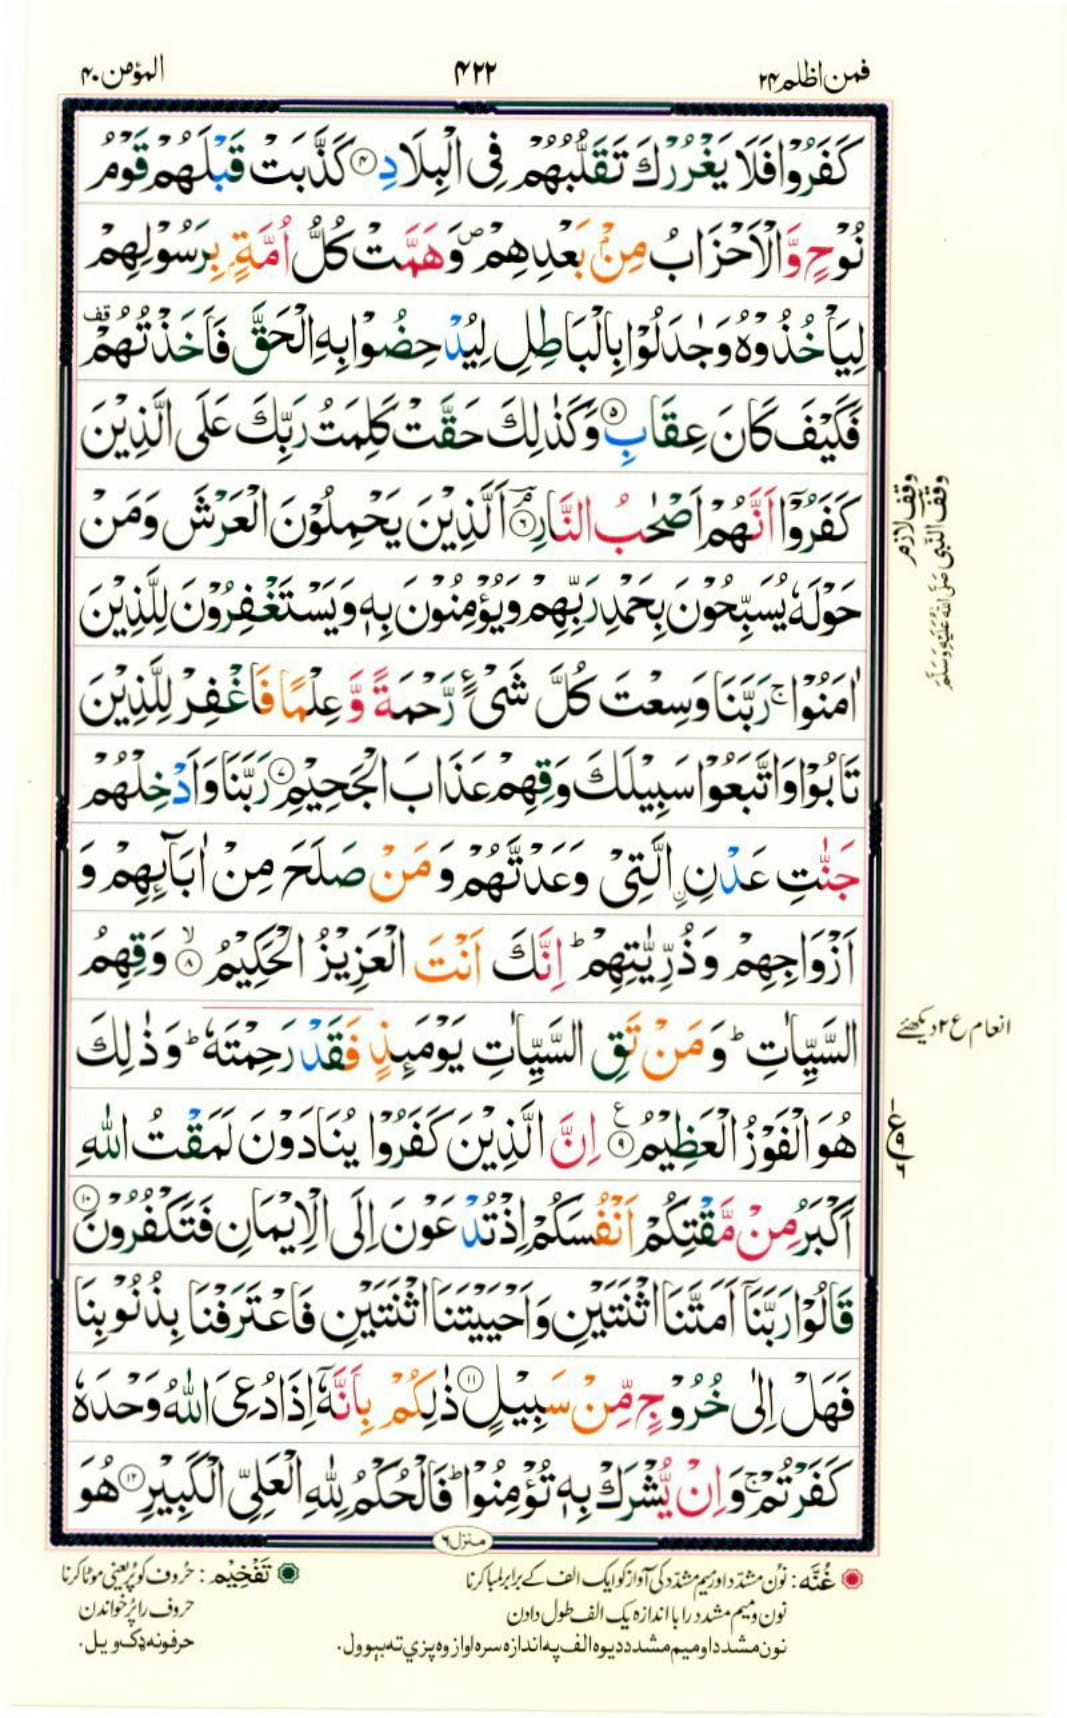 المؤمن ۴۰
۴۲۲
فمن اظلم ۲۴
كَفَرُوْا فَلَا يَغْرُرْكَ تَقَلُّبُهُمْ فِى الْبِلَادِ ۴ كَذَّبَتْ قَبْلَهُمْ قَوْمُ
نُوْحٍ وَّالْاَحْزَابُ مِنْۢ بَعْدِهِمْ ص وَهَمَّتْ كُلُّ اُمَّةٍۭ بِرَسُوْلِهِمْ
لِيَاْخُذُوْهُ وَجٰدَلُوْا بِالْبَاطِلِ لِيُدْحِضُوْا بِهِ الْحَقَّ فَاَخَذْتُهُمْ قف
فَكَيْفَ كَانَ عِقَابِ ۵ وَكَذٰلِكَ حَقَّتْ كَلِمَتُ رَبِّكَ عَلَى الَّذِيْنَ
كَفَرُوْٓا اَنَّهُمْ اَصْحٰبُ النَّارِ ۘ ۶ اَلَّذِيْنَ يَحْمِلُوْنَ الْعَرْشَ وَمَنْ
حَوْلَهٗ يُسَبِّحُوْنَ بِحَمْدِ رَبِّهِمْ وَيُؤْمِنُوْنَ بِهٖ وَيَسْتَغْفِرُوْنَ لِلَّذِيْنَ
اٰمَنُوْا ۚ رَبَّنَا وَسِعْتَ كُلَّ شَىْءٍ رَّحْمَةً وَّعِلْمًا فَاغْفِرْ لِلَّذِيْنَ
تَابُوْا وَاتَّبَعُوْا سَبِيْلَكَ وَقِهِمْ عَذَابَ الْجَحِيْمِ ۷ رَبَّنَا وَاَدْخِلْهُمْ
جَنّٰتِ عَدْنِ ِۨالَّتِىْ وَعَدْتَّهُمْ وَمَنْ صَلَحَ مِنْ اٰبَآئِهِمْ وَ
اَزْوَاجِهِمْ وَذُرِّيّٰتِهِمْ ؕ اِنَّكَ اَنْتَ الْعَزِيْزُ الْحَكِيْمُ ۙ ۸ وَقِهِمُ
السَّيِّاٰتِ ؕ وَمَنْ تَقِ السَّيِّاٰتِ يَوْمَئِذٍ فَقَدْ رَحِمْتَهٗ ؕ وَذٰلِكَ
هُوَ الْفَوْزُ الْعَظِيْمُ ۹ ع اِنَّ الَّذِيْنَ كَفَرُوْا يُنَادَوْنَ لَمَقْتُ اللّٰهِ
اَكْبَرُ مِنْ مَّقْتِكُمْ اَنْفُسَكُمْ اِذْ تُدْعَوْنَ اِلَى الْاِيْمَانِ فَتَكْفُرُوْنَ ۱۰
قَالُوْا رَبَّنَآ اَمَتَّنَا اثْنَتَيْنِ وَاَحْيَيْتَنَا اثْنَتَيْنِ فَاعْتَرَفْنَا بِذُنُوْبِنَا
فَهَلْ اِلٰى خُرُوْجٍ مِّنْ سَبِيْلٍ ۱۱ ذٰلِكُمْ بِاَنَّهٗٓ اِذَا دُعِىَ اللّٰهُ وَحْدَهٗ
كَفَرْتُمْ ۚ وَاِنْ يُّشْرَكْ بِهٖ تُؤْمِنُوْا ؕ فَالْحُكْمُ لِلّٰهِ الْعَلِىِّ الْكَبِيْرِ ۱۲ هُوَ
وقف لازم
وقف النبی صَلَّی اللّٰهُ عَلَیْهِ وَسَلَّم
انعام ع ۲ دیکھئے
منزل ۶
غُنَّه: نون مشدد اور میم مشدد کی آواز کو ایک الف کے برابر لمبا کرنا
نون و میم مشدد را با اندازہ یک الف طول دادن
نون مشدد او میم مشدد دیوه الف په اندازه سره اواز وه پزي ته بېوول.
تَفْخِيْم: حروف کو پُر یعنی موٹا کرنا
حروف را پُر خواندن
حرفونه ډک ویل.